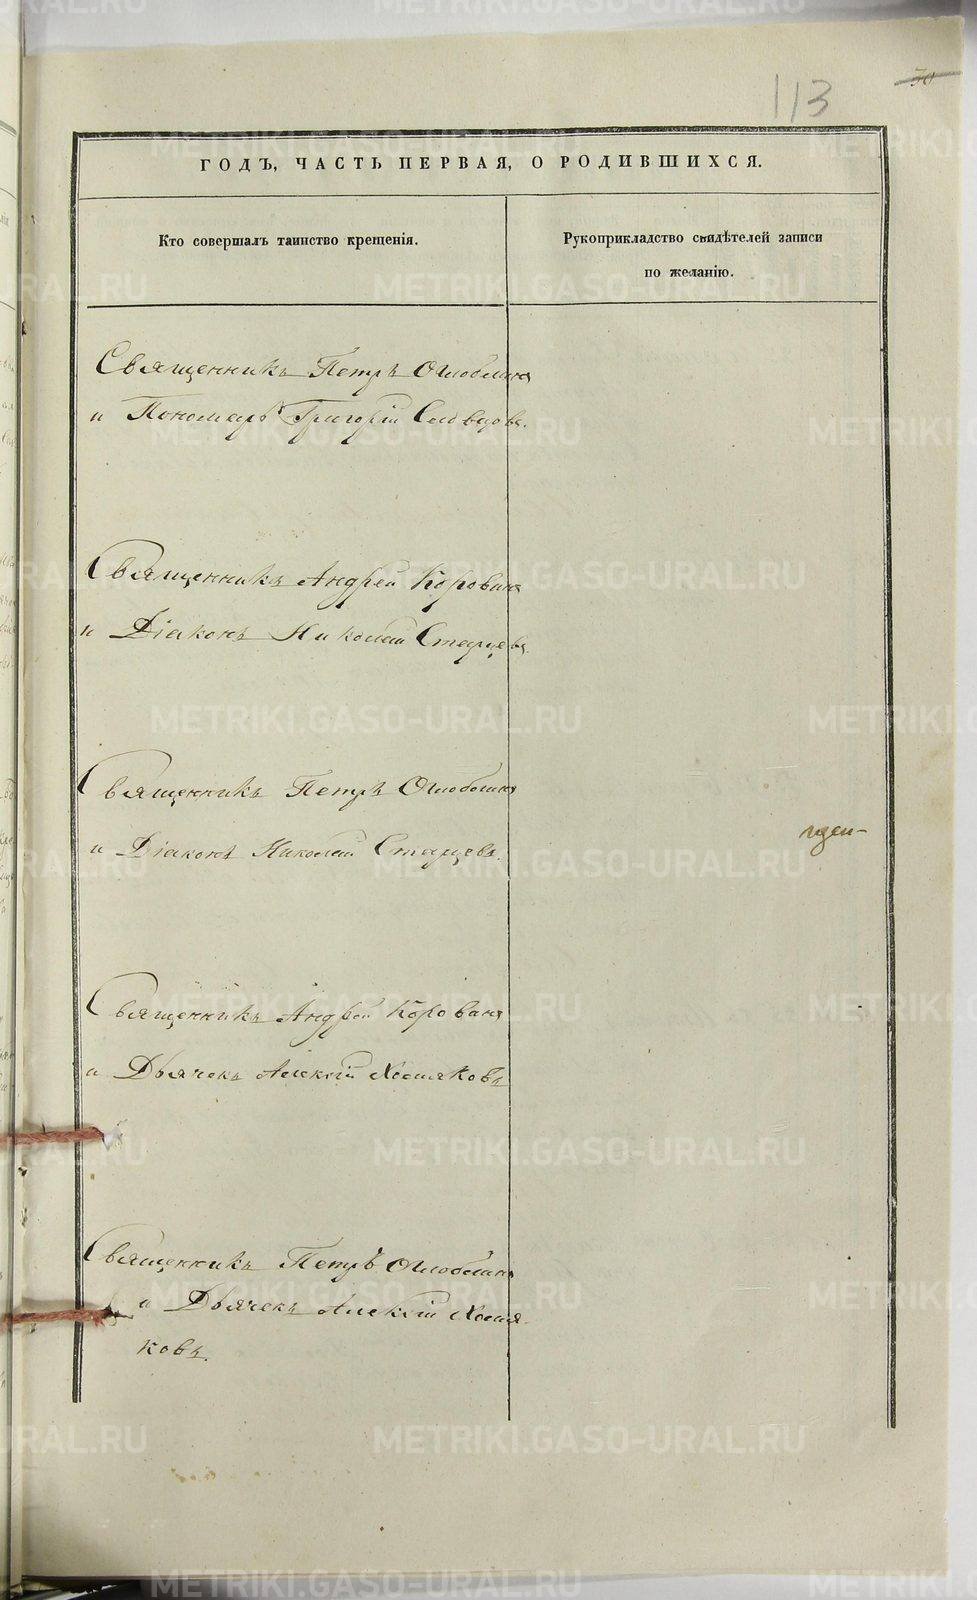 113
30
ГОДЪ, ЧАСТЬ ПЕРВАЯ, О РОДИВШИХСЯ.
Кто совершалъ таинство крещенія.
Рукоприкладство свидѣтелей записи
по желанію.
Священникъ Петръ Оглоблинъ
и Пономарь Григорій Словцовъ.
Священникъ Андрей Коровинъ
и Діаконъ Николай Старцевъ.
Священникъ Петръ Оглоблинъ
и Діаконъ Николай Старцевъ.
Священникъ Андрей Коровинъ
и Дьячекъ Алексій Хомяковъ
Священникъ Петръ Оглоблинъ
и Дьячекъ Алексій Хомя-
ковъ.
METRIKI.GASO-URAL.RU